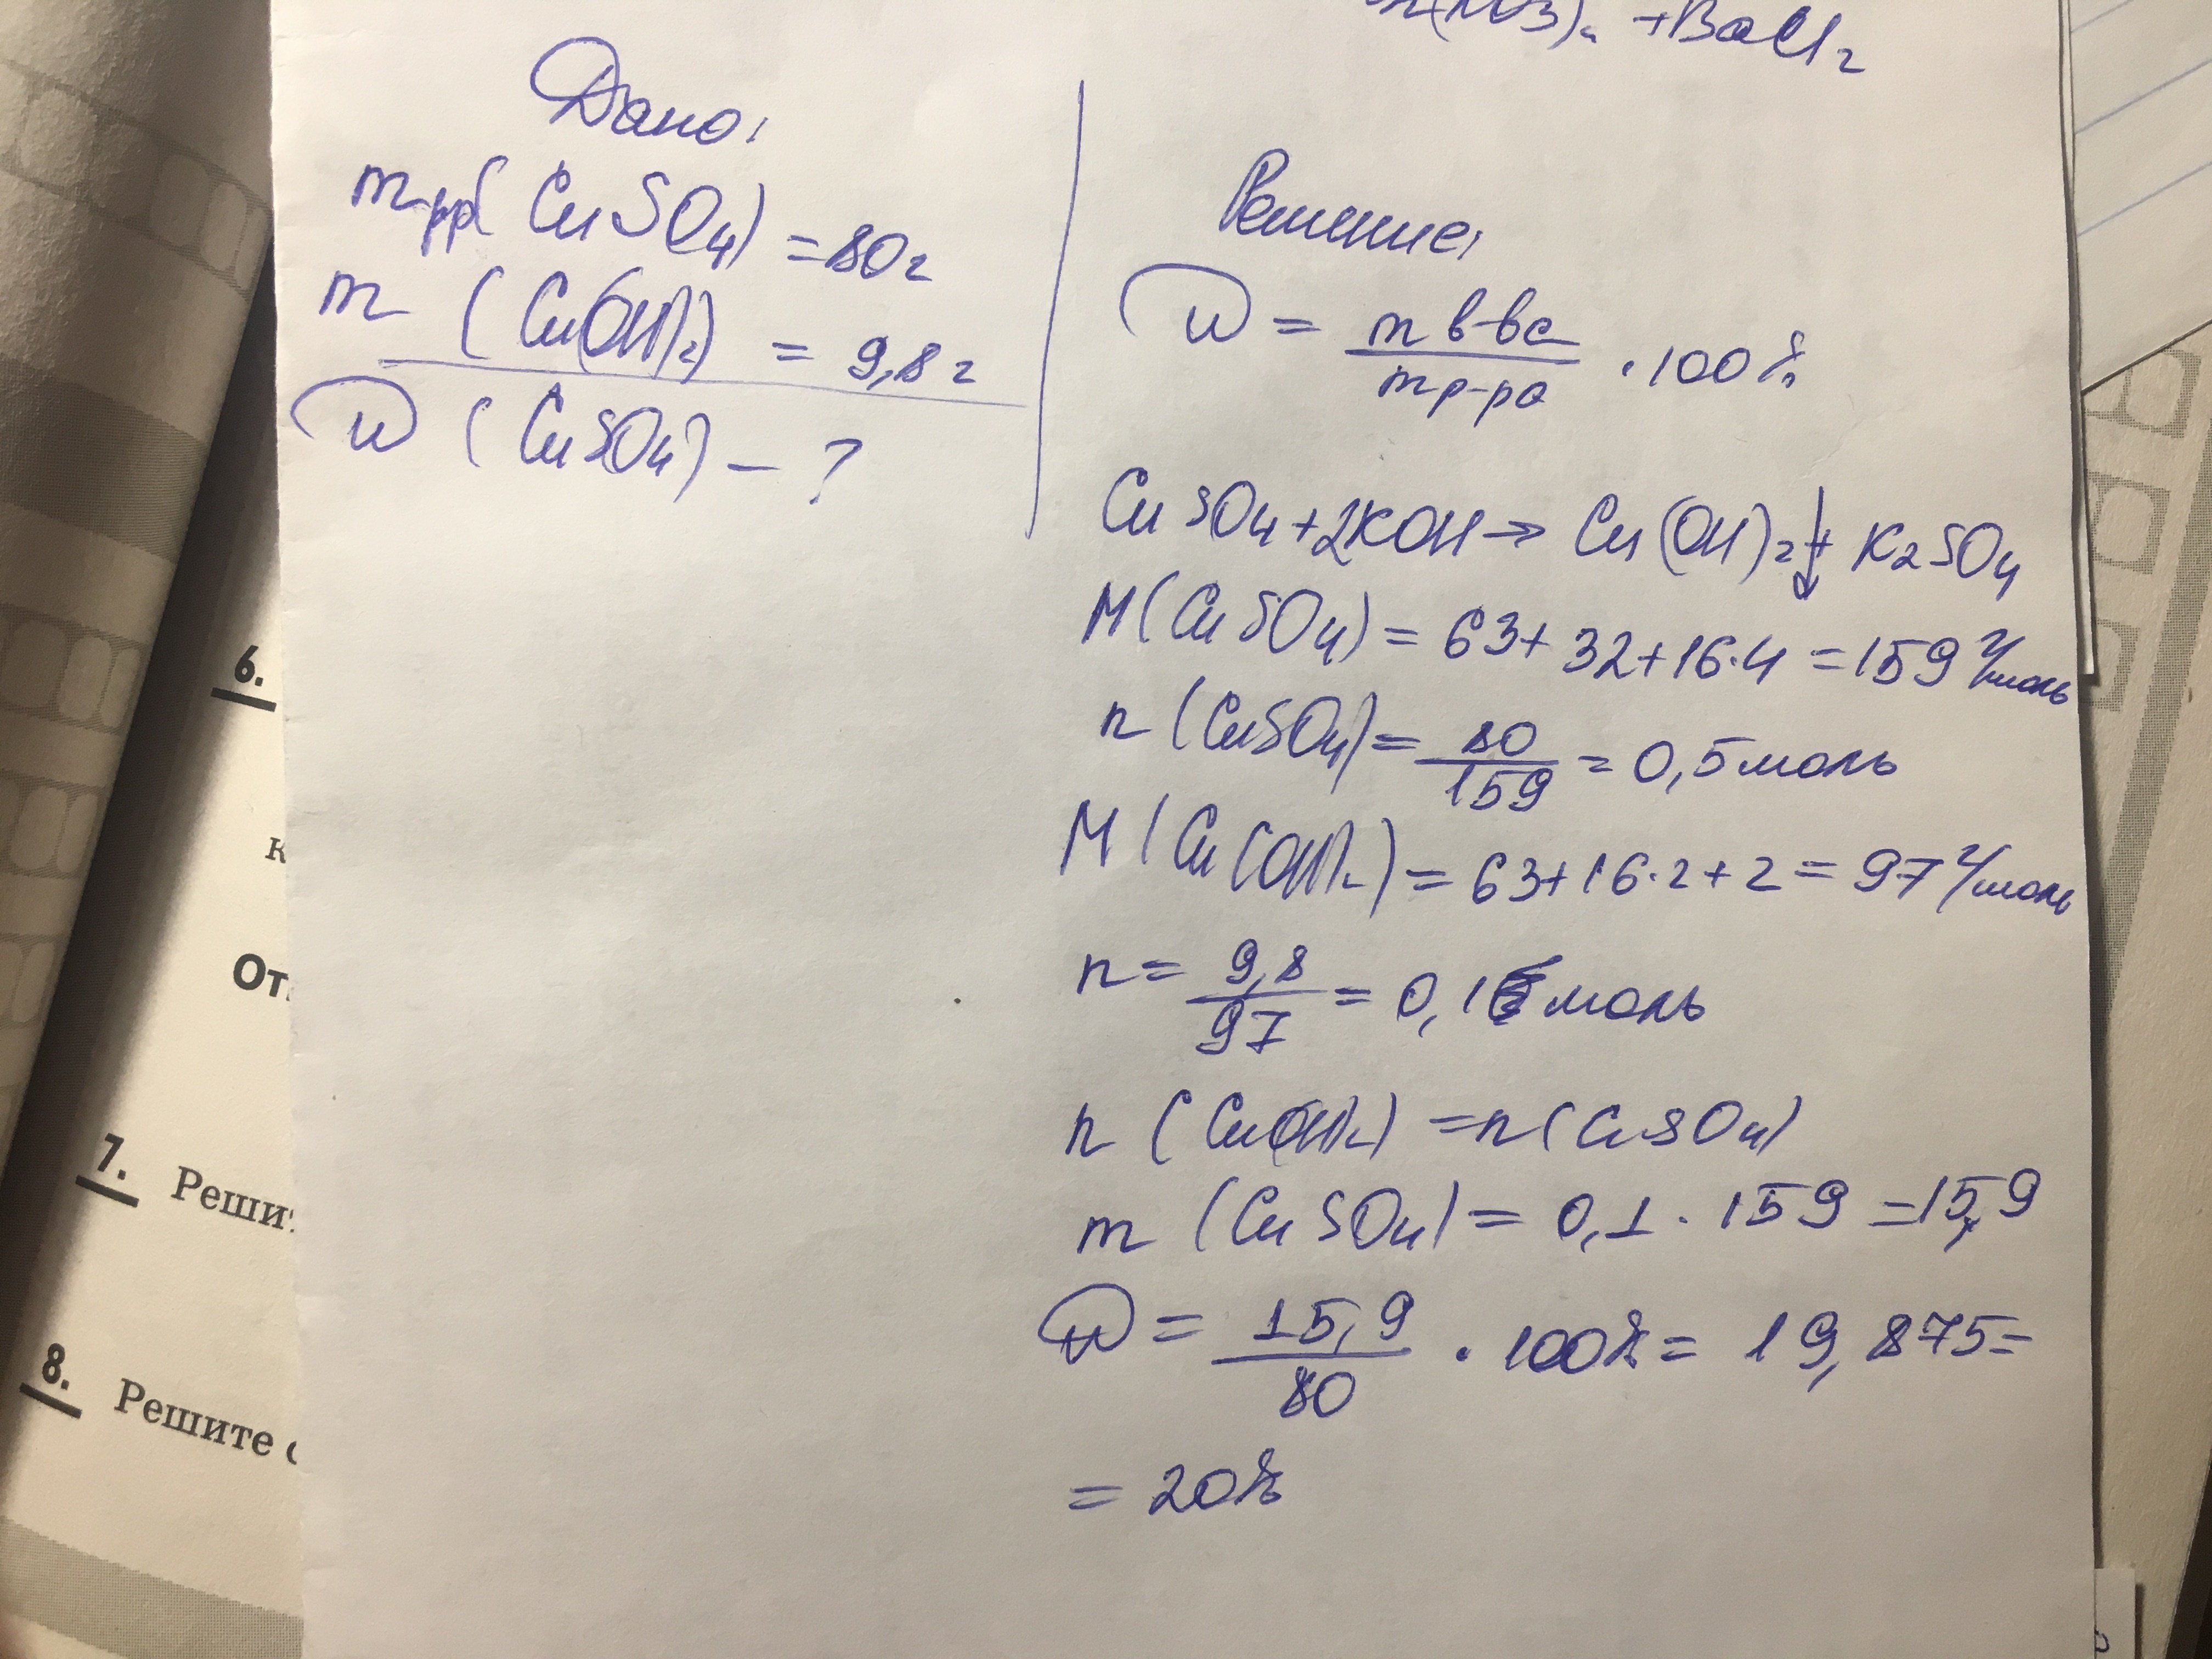 +BaCl2
Дано:
mрр(CuSO4) = 80г
m (Cu(OH)2) = 9,8г
W (CuSO4) – ?
Решение:
W = m в-ва / m р-ра · 100%
CuSO4+2KOH→ Cu(OH)2↓+ K2SO4
M(CuSO4) = 63+32+16·4 = 159 г/моль
n (CuSO4) = 80/159 = 0,5 моль
M(Cu(OH)2) = 63+16·2+2 = 97 г/моль
n = 9,8/97 = 0,1 моль
n (Cu(OH)2) = n(CuSO4)
m (CuSO4) = 0,1 · 159 = 15,9
W = 15,9/80 · 100% = 19,875=
= 20%
6.
к
От
7. Решит
8. Решите с